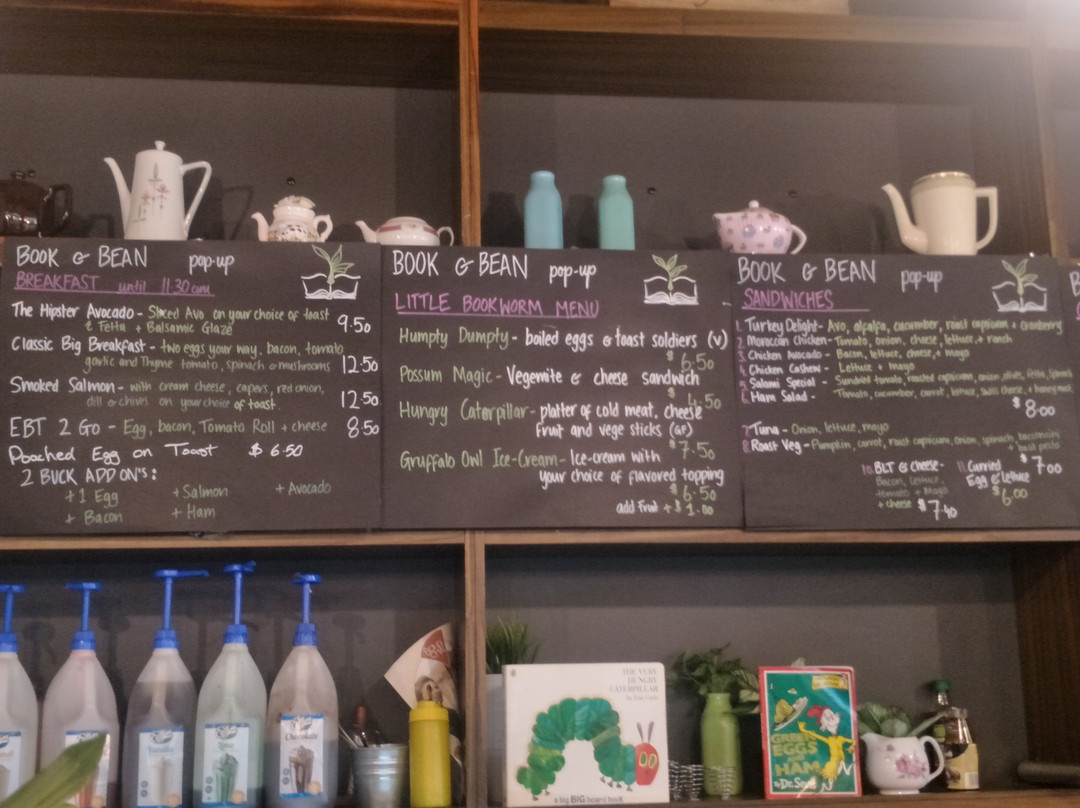 BOOK & BEAN pop-up
BREAKFAST until 11.30am
The Hipster Avocado - Sliced Avo on your choice of toast
& Fetta + Balsamic Glaze 9.50
Classic Big Breakfast - two eggs your way, bacon, tomato
garlic and Thyme tomato, spinach & mushrooms 12.50
Smoked Salmon - with cream cheese, capers, red onion,
dill & chives on your choice of toast. 12.50
EBT 2 Go - Egg, bacon, Tomato Roll + cheese 8.50
Poached Egg on Toast $6.50
2 BUCK ADD ON'S:
+1 Egg +Salmon +Avocado
+ Bacon + Ham
BOOK & BEAN pop-up
LITTLE BOOKWORM MENU
Humpty Dumpty - boiled eggs & toast soldiers (v)
$6.50
Possum Magic - Vegemite & cheese sandwich
$4.50
Hungry Caterpillar - platter of cold meat, cheese
fruit and vege sticks (GF)
$7.50
Gruffalo Owl Ice-Cream - Ice-cream with
your choice of flavored topping
$6.50
add fruit + $1.00
BOOK & BEAN pop-up
SANDWICHES
1. Turkey Delight - Avo, alfalfa, cucumber, roast capsicum + cranberry
2. Moroccan Chicken - Tomato, onion, cheese, lettuce, + ranch
3. Chicken Avocado - Bacon, lettuce, cheese, + mayo
4. Chicken Cashew - Lettuce + mayo
5. Salami Special - Sundried tomato, roasted capsicum, onion, olives, fetta,
6. Ham Salad - Tomato, cucumber, carrot, lettuce, swiss cheese +
$8.00
7. Tuna - Onion, lettuce, mayo
8. Roast Veg - Pumpkin, carrot, roast capsicum, onion, spinach,
+ basil pesto
$7.00
10. BLT & cheese -
Bacon, Lettuce,
tomato + Mayo
+ cheese $7.40
11. Curried
Egg & lettuce
$6.00
Vanilla
Lime
Chocolate
THE VERY
HUNGRY
CATERPILLAR
by Eric Carle
a big BIG board book
GREEN
EGGS
AND
HAM
By Dr. Seuss